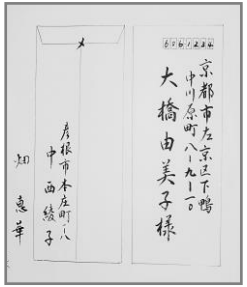 6061234
京都市左京区下鴨
中川原町八ー九ー一〇
大橋由美子様
〆
彦根市本庄町一八
中西綾子
畑恵華